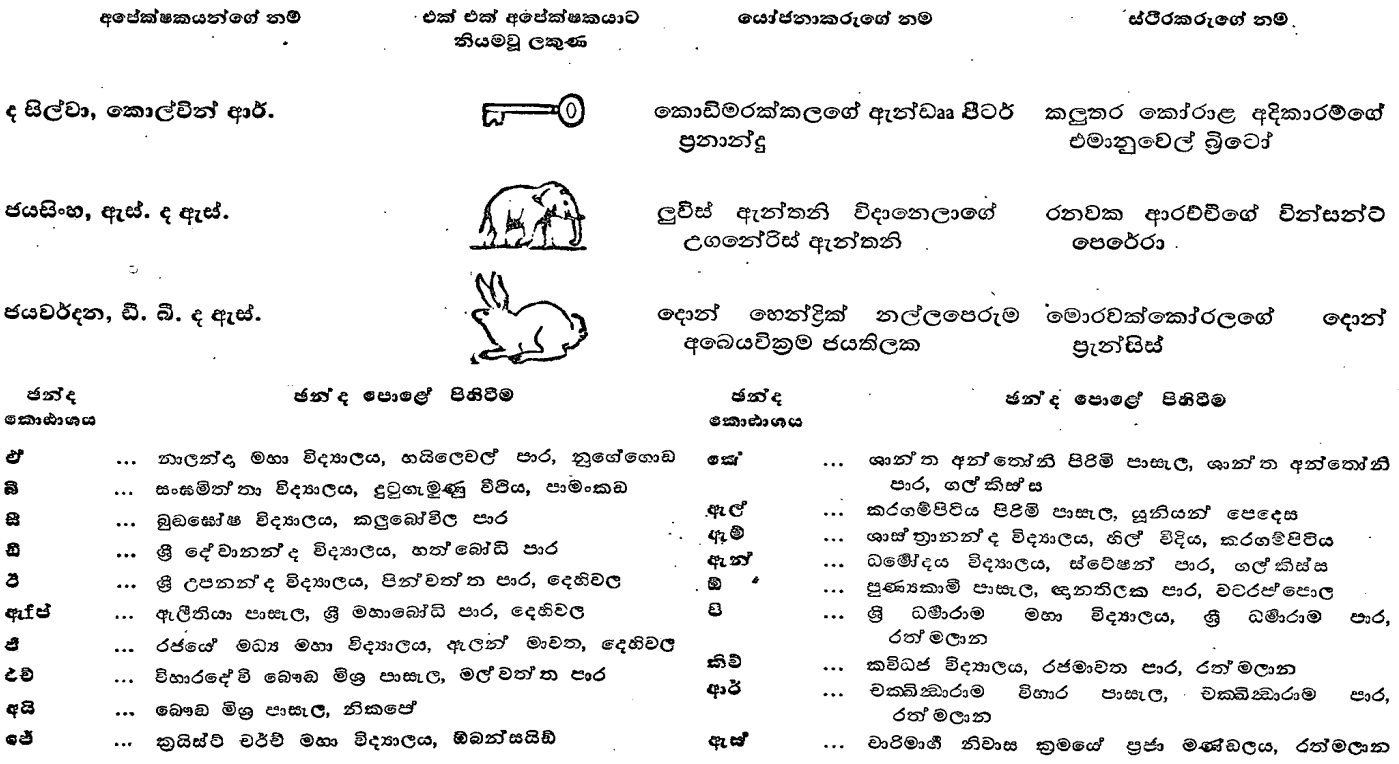 අපේක්ෂකයන්ගේ නම්
එක් එක් අපේක්ෂකයාට
නියමවූ ලකුණ
යෝජනාකරුගේ නම
ස්ථිරකරුගේ නම
ද සිල්වා, කොල්වින් ආර්.
කොඩිමරක්කලගේ ඇන්ඩෲ පීටර්
ප්‍රනාන්දු
කලුතර කෝරාළ අදිකාරම්ගේ
එමානුවෙල් බ්‍රිටෝ
ජයසිංහ, ඇස්. ද ඇස්.
ලුවිස් ඇන්තනි විදානෙලාගේ
උගනේරිස් ඇන්තනි
රනවක ආරච්චිගේ වින්සන්ට්
පෙරේරා
ජයවර්දන, ඩී. බී. ද ඇස්.
දොන් හෙන්ද්‍රික් නල්ලපෙරුම
අබෙයවික්‍රම ජයතිලක
මොරවක්කෝරලගේ දොන්
ප්‍රැන්සිස්
ඡන්ද
කොඨාශය
ඡන්ද පොළේ පිහිටීම
ඒ ... නාලන්දා මහා විද්‍යාලය, හයිලෙවල් පාර, නුගේගොඩ
බී ... සංඝමිත්තා විද්‍යාලය, දුටුගැමුණු වීථිය, පාමංකඩ
සී ... බුද්ධඝෝෂ විද්‍යාලය, කලුබෝවිල පාර
ඩී ... ශ්‍රී දේවානන්ද විද්‍යාලය, හත්බෝඩි පාර
ඊ ... ශ්‍රී උපනන්ද විද්‍යාලය, පින්වත්ත පාර, දෙහිවල
ඇෆ් ... ඇලීනියා පාසැල, ශ්‍රී මහාබෝධි පාර, දෙහිවල
ජී ... රජයේ මධ්‍ය මහා විද්‍යාලය, ඇලන් මාවත, දෙහිවල
එච් ... විහාරදේවි බෞද්ධ මිශ්‍ර පාසැල, මල්වත්ත පාර
අයි ... බෞද්ධ මිශ්‍ර පාසැල, නිකපේ
ජේ ... ක්‍රයිස්ට් චර්ච් මහා විද්‍යාලය, ඕබන්සයිඩ්
ඡන්ද
කොඨාශය
ඡන්ද පොළේ පිහිටීම
කේ ... ශාන්ත අන්තෝනි පිරිමි පාසැල, ශාන්ත අන්තෝනි
පාර, ගල්කිස්ස
ඇල් ... කරගම්පිටිය පිරිමි පාසැල, යූනියන් පෙදෙස
ඇම් ... ශාස්ත්‍රානන්ද විද්‍යාලය, හිල් විදිය, කරගම්පිටිය
ඇන් ... ධර්මෝදය විද්‍යාලය, ස්ටේෂන් පාර, ගල්කිස්ස
ඕ ... පුණ්‍යකාමී පාසැල, ඥානතිලක පාර, වටරප්පොල
පී ... ශ්‍රී ධර්මාරාම මහා විද්‍යාලය, ශ්‍රී ධර්මාරාම පාර,
රත්මලාන
කිව් ... කවිධජ විද්‍යාලය, රජමාවත පාර, රත්මලාන
ආර් ... චක්ඛින්ද්‍රාරාම විහාර පාසැල, චක්ඛින්ද්‍රාරාම පාර,
රත්මලාන
ඇස් ... චාරිමාගී නිවාස ක්‍රමයේ ප්‍රජා මණ්ඩලය, රත්මලාන